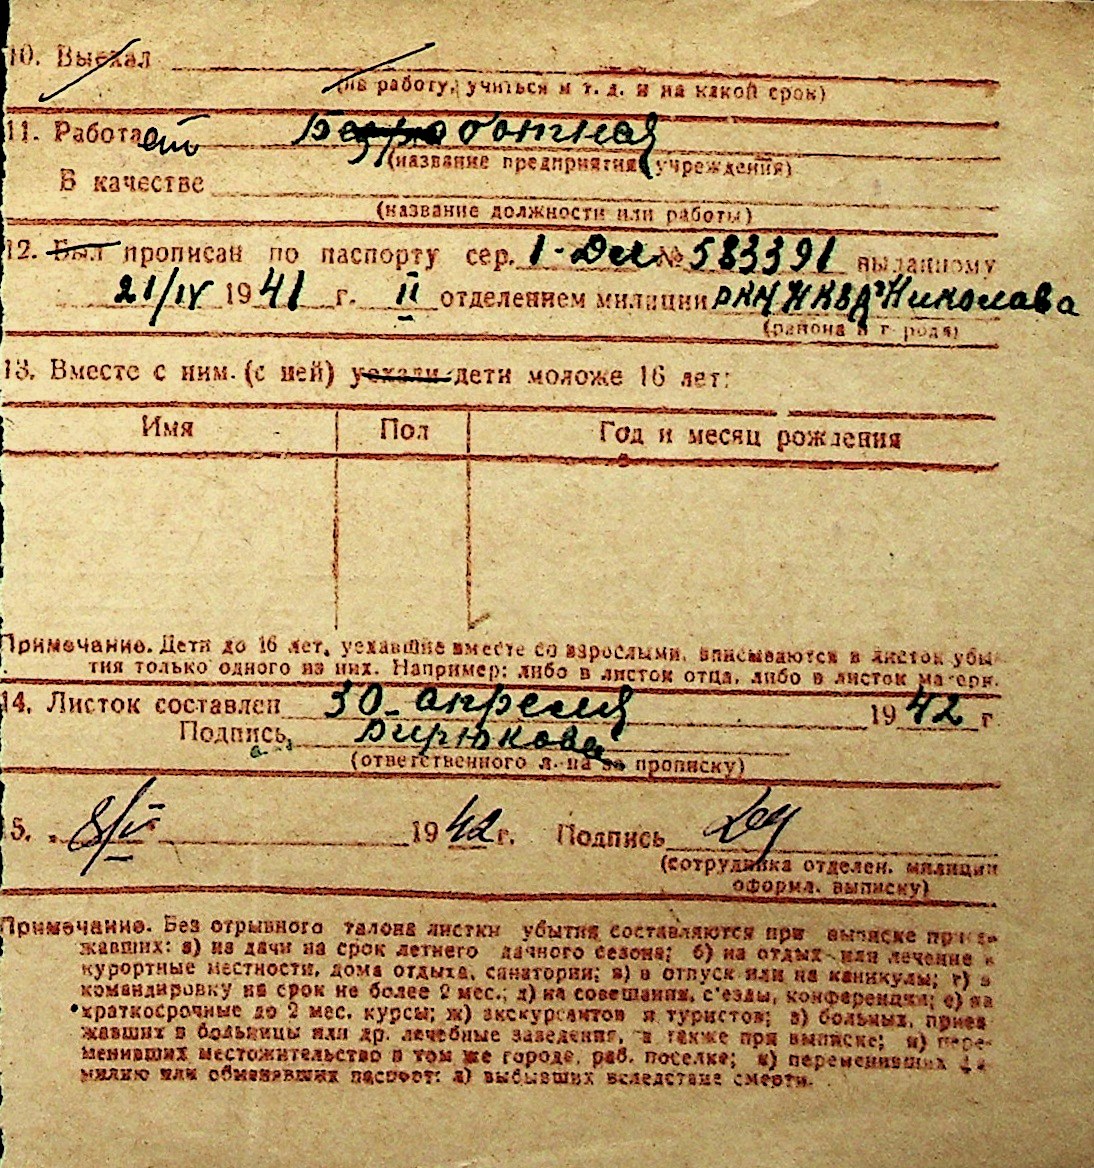 10. Выехал
(на работу, учиться и т. д. и на какой срок)
11. Работает Безработная
(название предприятия, учреждения)
В качестве
(название должности или работы)
12. Был прописан по паспорту сер. 1-Дел № 583391 выданному
21/IV 1941 г. II отделением милиции РКМ НКВД г Николаева
(района и города)
13. Вместе с ним (с ней) уехали дети моложе 16 лет:
Имя Пол Год и месяц рождения
Примечание. Дети до 16 лет, уехавшие вместе со взрослыми, вписываются в листок убы-
тия только одного из них. Например: либо в листок отца, либо в листок матери.
14. Листок составлен 30 апреля 1942 г
Подпись Бирюкова
(ответственного л-ца за прописку)
15. 8/V 1942 г. Подпись
(сотрудника отделен. милиции
оформл. выписку)
Примечание. Без отрывного талона листки убытия составляются при выписке приез-
жавших: а) на дачи на срок летнего дачного сезона; б) на отдых или лечение в
курортные местности, дома отдыха, санатории; в) в отпуск или на каникулы; г) в
командировку на срок не более 2 мес.; д) на совещания, с'езды, конференции; е) на
краткосрочные до 2 мес. курсы; ж) экскурсантов и туристов; з) больных, приез
жавших в больницы или др. лечебные заведения, а также при выписке; и) пере-
менивших местожительство в том же городе, раб. поселке; к) переменивших фа
милию или обменявших паспорт; л) выбывших вследствие смерти.